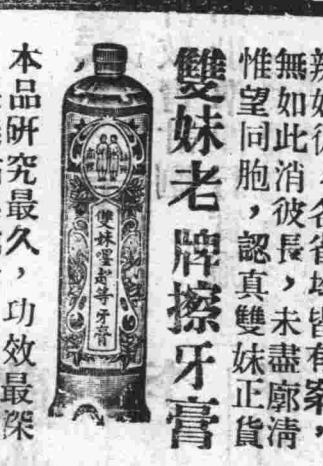 無如此消彼長，未盡廓清
惟望同胞，認真雙妹正貨
雙妹老牌擦牙膏
雙妹嚜超等牙膏
本品研究最久，功效最深